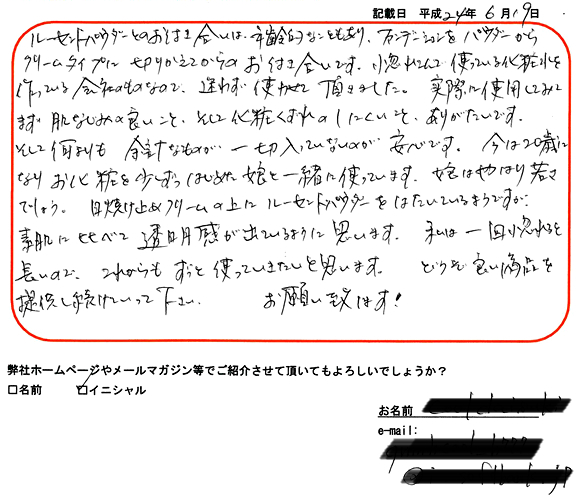 記載日 平成24年6月19日
ルーセントパウダーとのお付き合いは、年齢的なこともあり、ファンデーションをパウダーから
クリームタイプに切りかえてからのお付き合いです。小惚れこんで使っている化粧水を
作っている会社のものなので、迷わず使わせて頂きました。実際に使用してみて
まず肌なじみの良いこと、そして化粧くずれのしにくいこと、ありがたいです。
そして何よりも余計なものが、一切入っていないのが安心です。今は20歳に
なりお化粧を少しずつはじめた娘と一緒に使っています。娘はやはり若さ
でしょう。日焼け止めクリームの上にルーセントパウダーをはたいているようですが、
素肌に比べて透明感が出ているように思います。私は一回惚れると
長いので、これからもずっと使っていきたいと思います。どうぞ良い商品を
提供し続けていって下さい。お願い致します!
弊社ホームページやメールマガジン等でご紹介させて頂いてもよろしいでしょうか?
□名前 ☑イニシャル
お名前
e-mail: